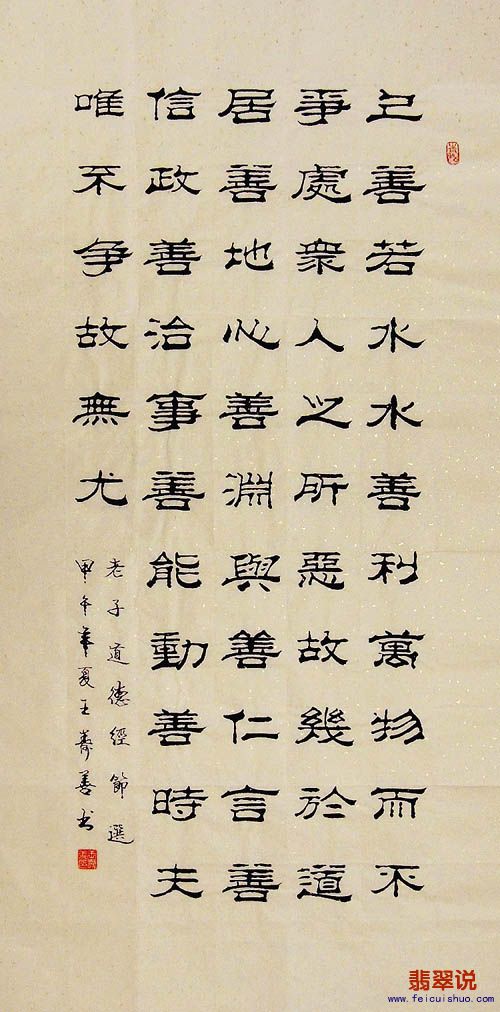 上善若水水善利萬物而不
爭處衆人之所惡故幾於道
居善地心善淵與善仁言善
信政善治事善能動善時夫
唯不争故無尤
老子道德經節選
甲午年夏王壽善书
翡翠说
www.feicuishuo.com